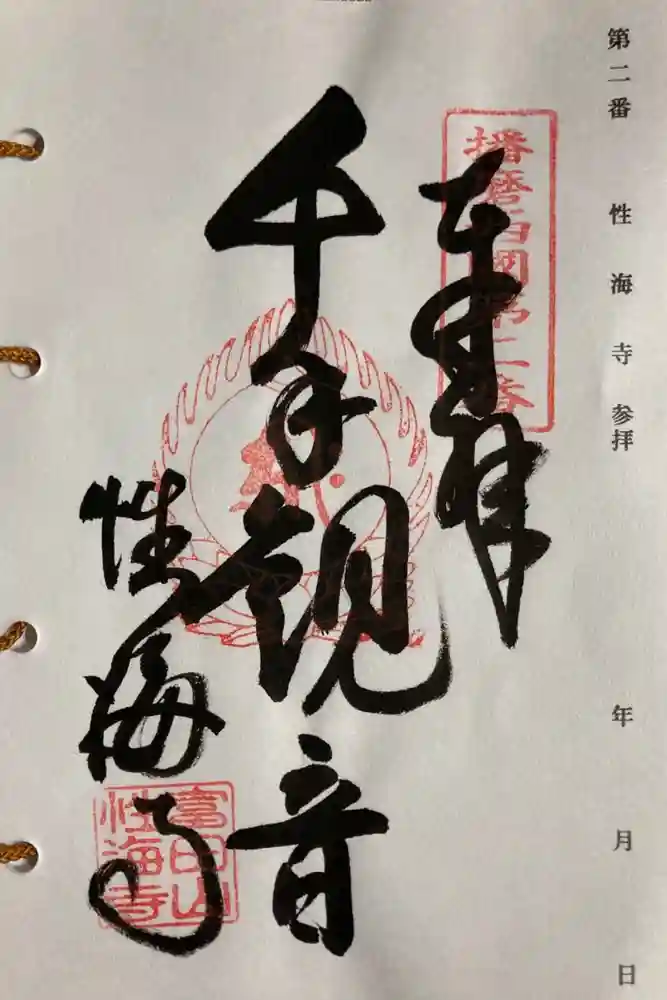 第二番 性海寺 参拝
年 月 日
播磨西國第二番
奉拝
千手観音
性海寺
富田山
性海寺